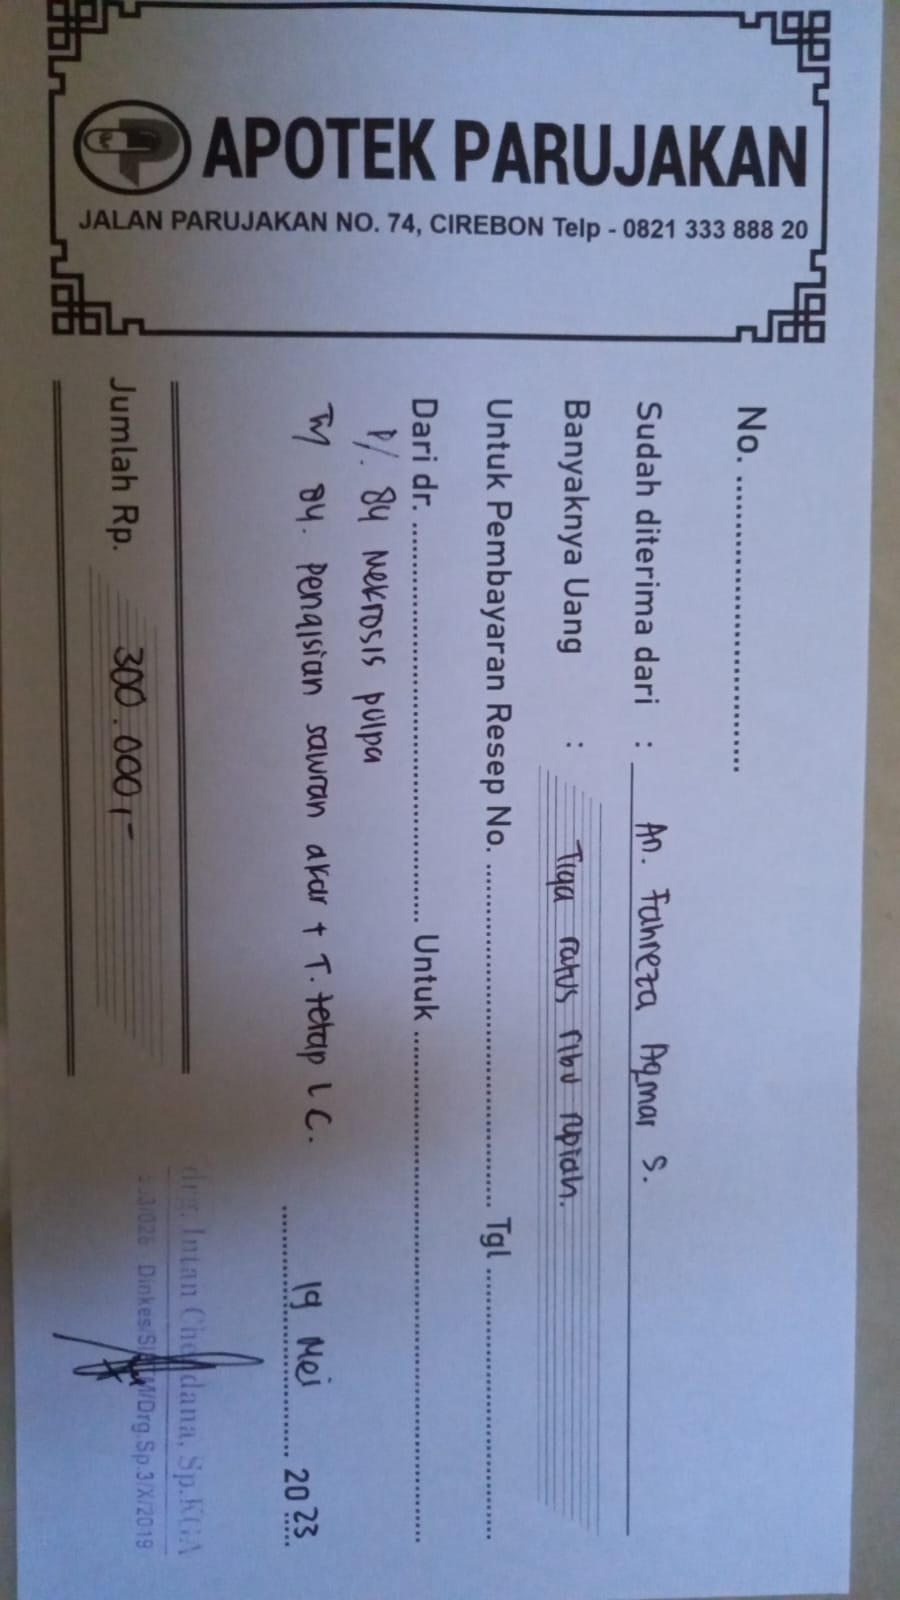 APOTEK PARUJAKAN
JALAN PARUJAKAN NO. 74, CIREBON Telp - 0821 333 888 20
No. ................................
Sudah diterima dari : An. Fahreza Aqmar S.
Banyaknya Uang : Tiga ratus ribu rupiah.
Untuk Pembayaran Resep No. ........................................ Tgl ................................
Dari dr. ............................................. Untuk ............................................................
D/. 84 Nekrosis pulpa
84. Pengisian sawran akar + T. tetap L C.
19 Mei 2023
drg. Intan Sp.KGA
Dinkes/ /Drg.Sp.3/X/2019
Jumlah Rp. 300.000,-